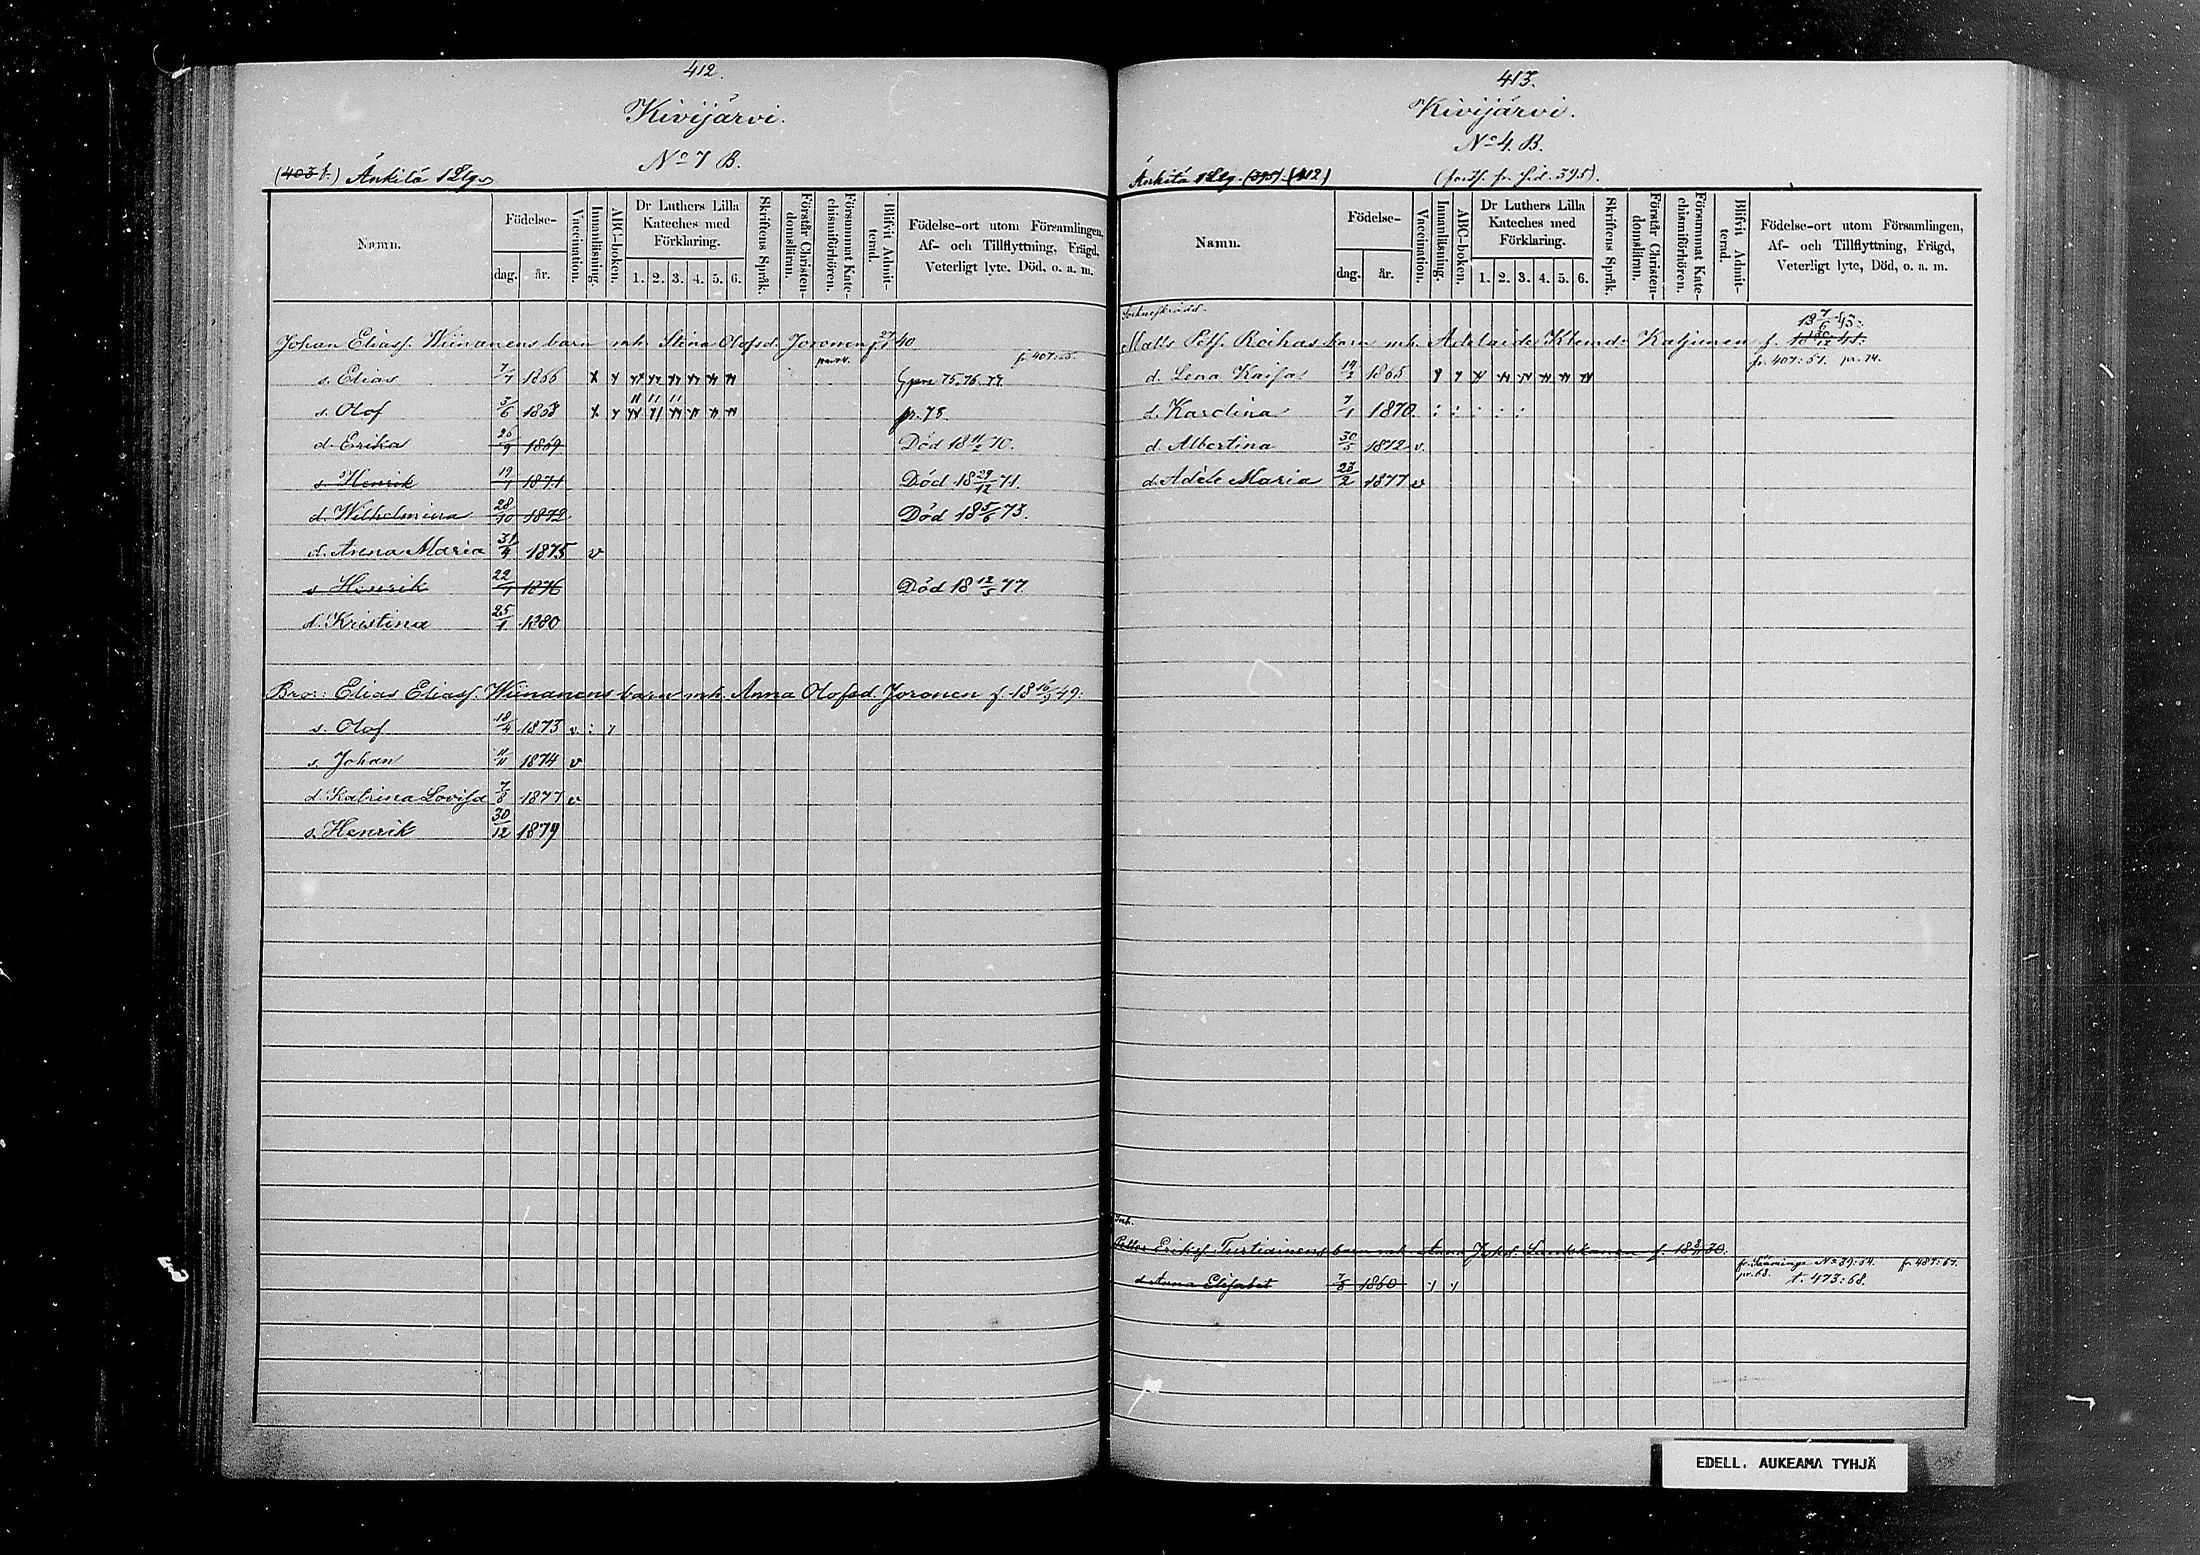 412.
Kivijärvi.
No 7 B.
(403 f.) Änkilä 1 Slg.
Namn.
Födelse-
dag.
år.
Vaccination.
Innanläsning.
ABC-boken.
Dr Luthers Lilla Kateches med Förklaring.
1. 2. 3. 4. 5. 6.
Skriftens Språk.
Förstår Christendomsläran.
Försummat Katechismiförhören.
Blifvit Admitterad.
Födelse-ort utom Församlingen, Af- och Tillflyttning, Frägd, Veterligt lyte, Död, o. a. m.
Johan Eliasf. Wiinanens barn mh. Stina Olofsd. Joronen f. 27/1 40
s. Elias 7/7 1866 pre 75. 76. 77.
s. Olof 3/6 1868 pr. 78.
d. Erika 26/9 1869 Död 18 11/2 70.
s. Henrik 19/1 1871 Död 18 29/12 71.
d. Wilhelmina 28/10 1872 Död 18 5/6 73.
d. Anna Maria 31/4 1875 v
s. Henrik 22/1 1876 Död 18 12/5 77
d. Kristina 25/1 1880
Bror: Elias Eliasf. Wiinanens barn mh. Anna Olofsd. Joronen f. 18 16/3 49:
s. Olof 18/4 1873 v : y
s. Johan 11/11 1874 v
d. Katrina Lovisa 7/8 1877 v
s. Henrik 30/12 1879
413.
Kivijärvi.
No 4. B.
Änkilä 1 Slg. (395) (412) (forts. fr. sid. 395).
Namn.
Födelse-
dag.
år.
Vaccination.
Innanläsning.
ABC-boken.
Dr Luthers Lilla Kateches med Förklaring.
1. 2. 3. 4. 5. 6.
Skriftens Språk.
Förstår Christendomsläran.
Försummat Katechismiförhören.
Blifvit Admitterad.
Födelse-ort utom Församlingen, Af- och Tillflyttning, Frägd, Veterligt lyte, Död, o. a. m.
Sockneskrädd.
Matts Roihas barn mh. Adelaide Klemd. f. 18 7/6 45.
fr. 407: 51. pr. 74.
d. Lena Kaisa 14/2 1865
d. Karolina 7/1 1870 : : : : :
d. Albertina 30/5 1872 v.
d. Adèle Maria 23/2 1877 v
Inh.
Petter Eriksf. Turtiainens barn mh. Anna f. 18 30.
fr. Sääminge No 39: 64. fr. 487: 67.
d. Anna Elisabet 7/8 1860 y y pr. 68. t. 473: 68.
EDELL. AUKEAMA TYHJÄ